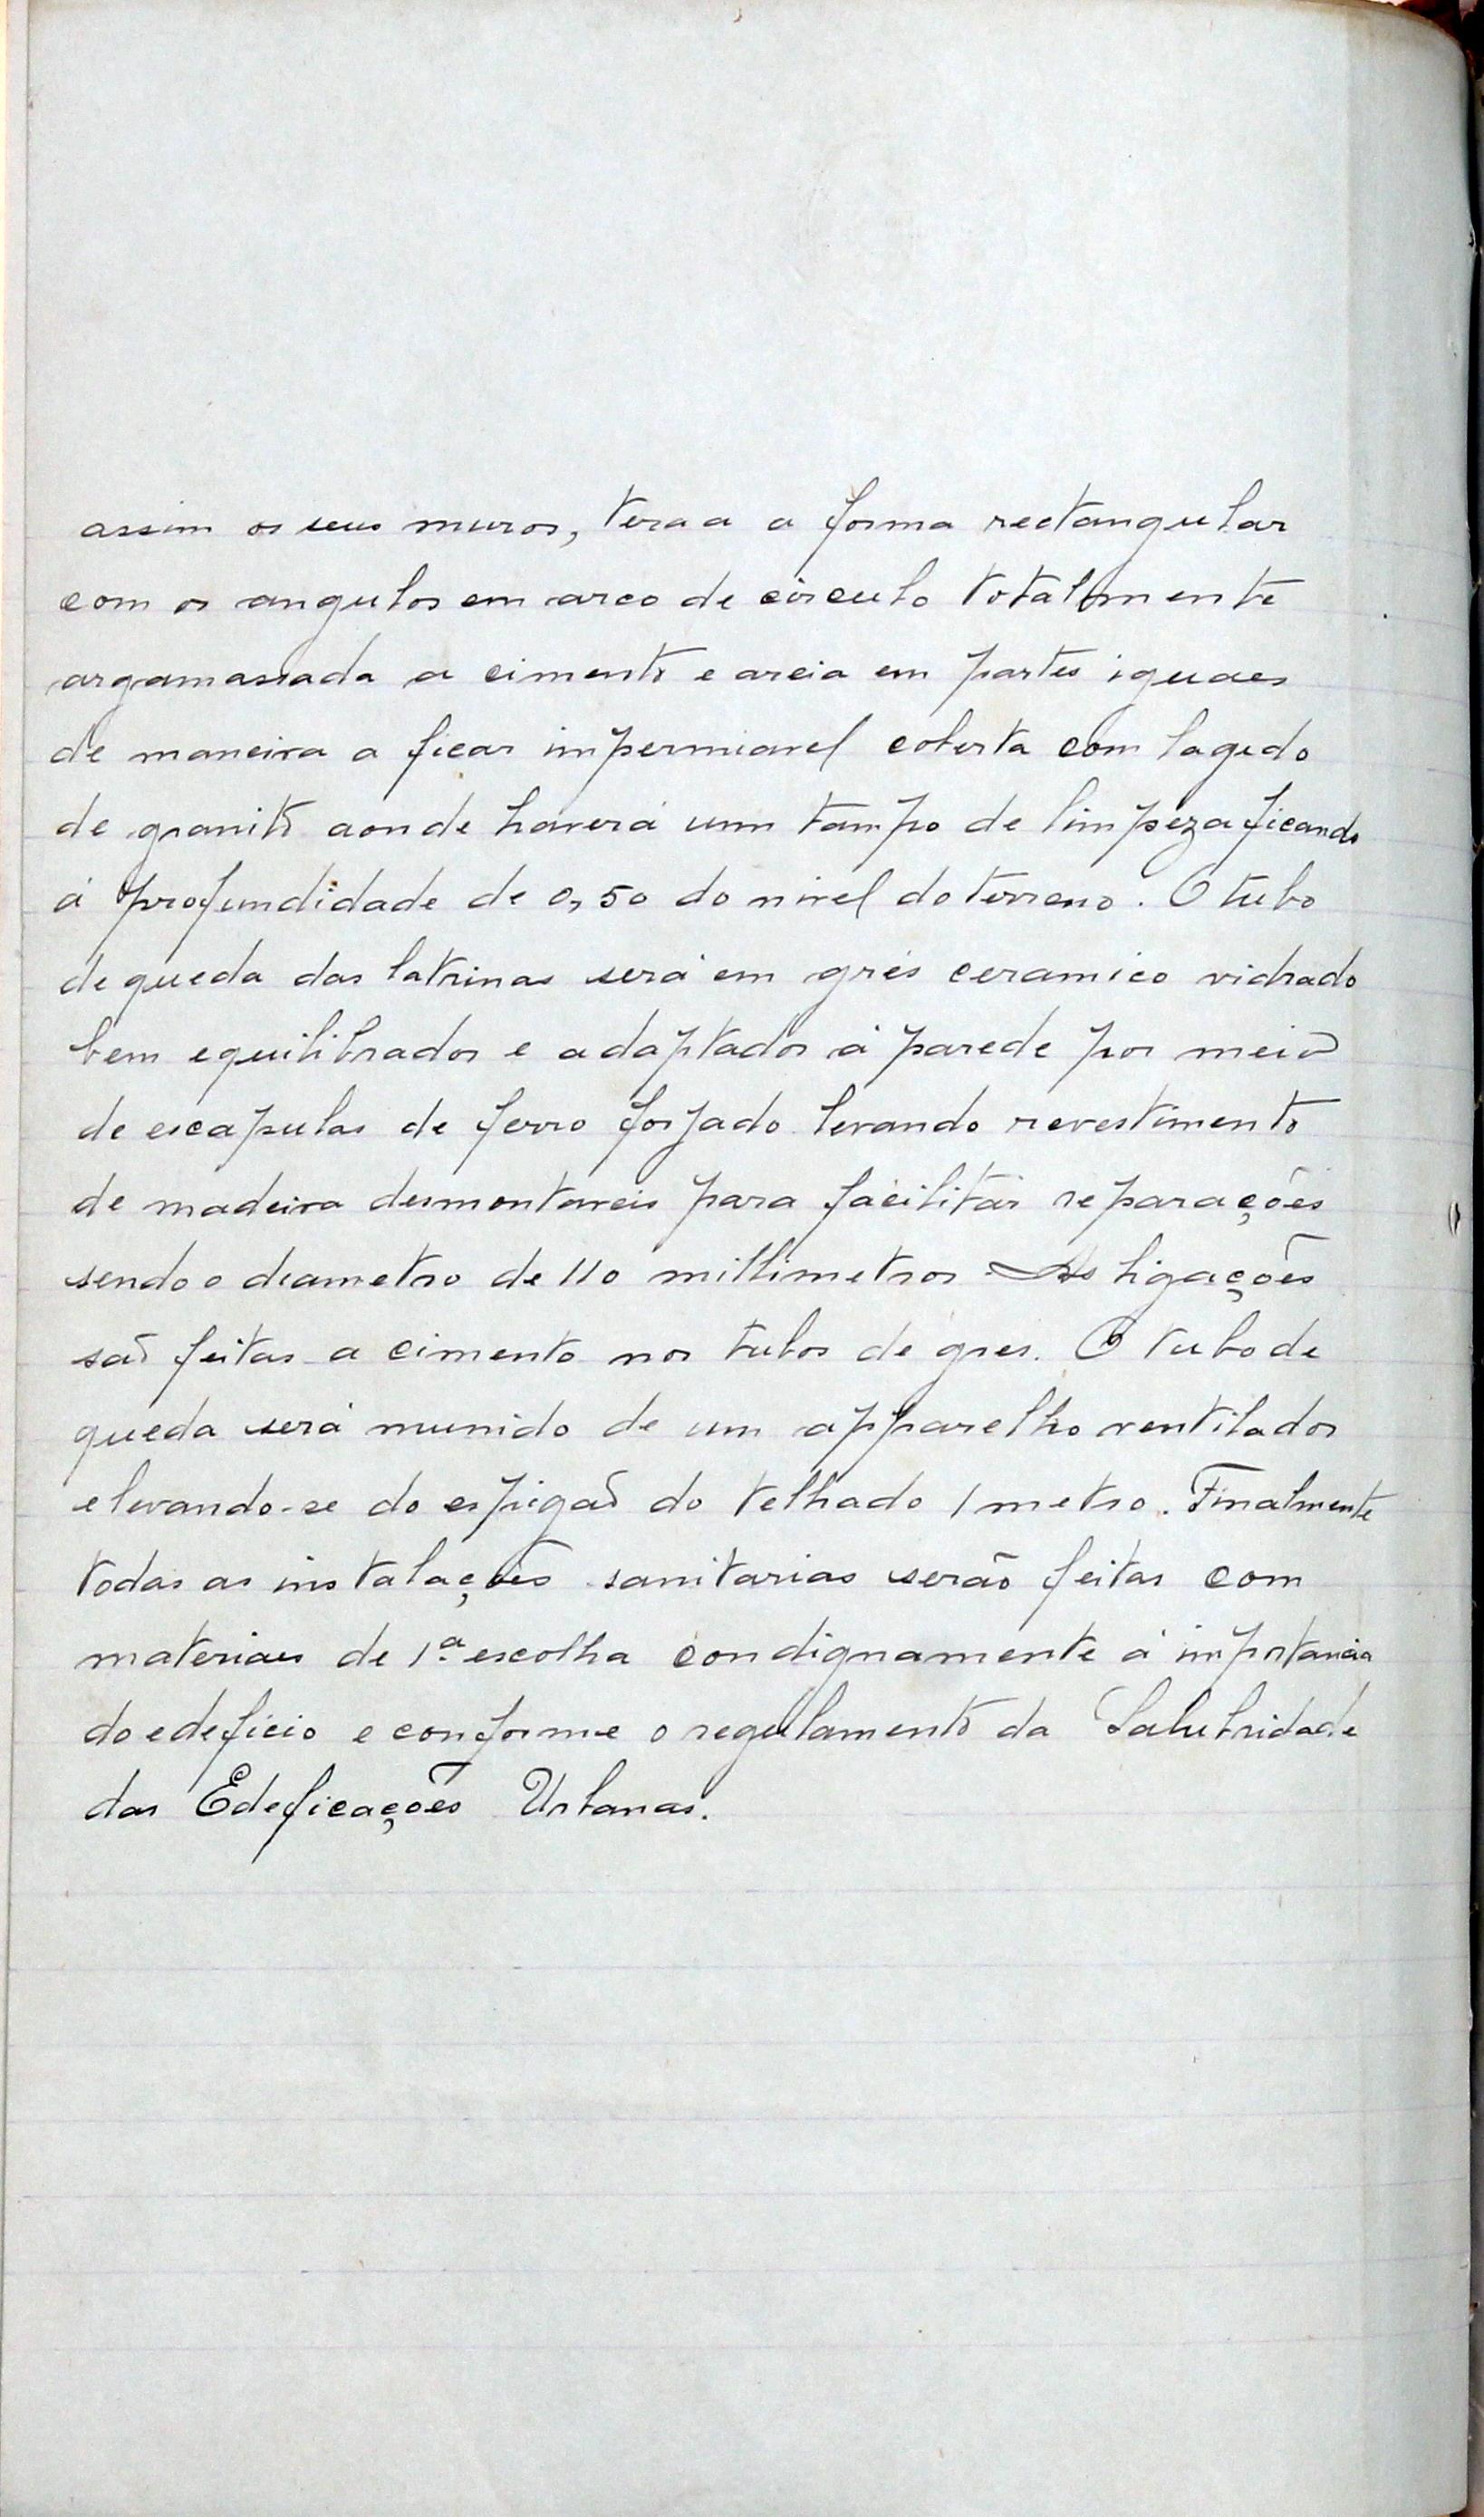 assim os seus muros, teraa a forma rectangular
com os angulos em arco de circulo totalmente
argamassada a cimento e areia em partes iguaes
de maneira a ficar impermiavel coberta com lagedo
de granito aonde haverá um tampo de limpeza ficando
á profundidade de 0,50 do nivel do terreno. O tubo
de queda das latrinas será em grés ceramico vidrado
bem equilibrados e adaptados á parede por meio
de escapulas de ferro forjado levando revestimento
de madeira desmontaveis para facilitar reparações
sendo o diametro de 110 millimetros As ligações
são feitas a cimento nos tubos de gres. O tubo de
queda será munido de um apparelho ventilador
elevando-se do espigão do telhado 1 metro. Finalmente
todas as instalações sanitarias serão feitas com
materiaes de 1.ª escolha condignamente á importancia
do edeficio e conforme o regulamento da Salubridade
das Edeficações Urbanas.